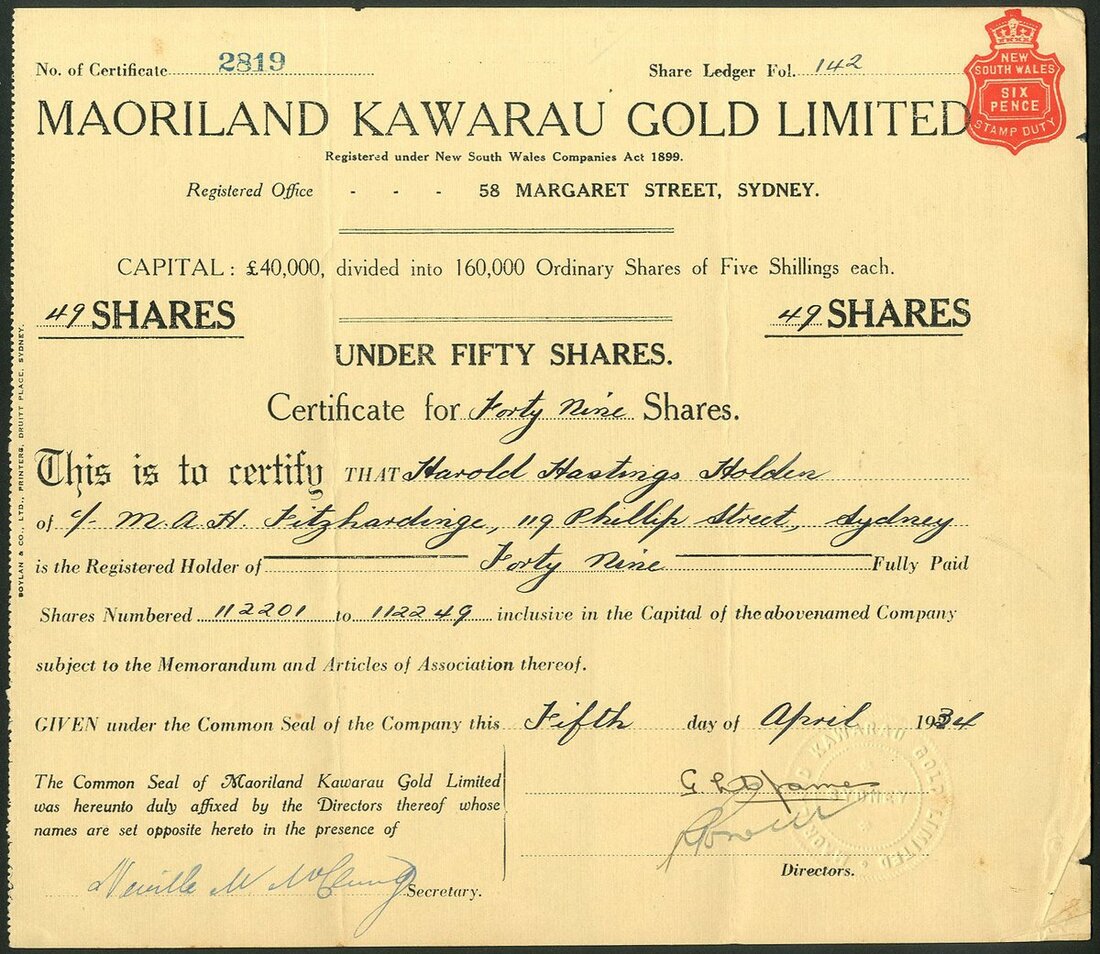 No. of Certificate 2819
Share Ledger Fol. 142
NEW
SOUTH WALES
SIX
PENCE
STAMP DUTY
MAORILAND KAWARAU GOLD LIMITED
Registered under New South Wales Companies Act 1899.
Registered Office - - - 58 MARGARET STREET, SYDNEY.
CAPITAL: £40,000, divided into 160,000 Ordinary Shares of Five Shillings each.
49 SHARES
49 SHARES
UNDER FIFTY SHARES.
Certificate for Forty Nine Shares.
This is to certify THAT Harold Hastings Holden
of c/- M. A. H. Fitzhardinge, 119 Phillip Street, Sydney
is the Registered Holder of Forty Nine Fully Paid
Shares Numbered 112201 to 112249 inclusive in the Capital of the abovenamed Company
subject to the Memorandum and Articles of Association thereof.
GIVEN under the Common Seal of the Company this Fifth day of April 1934
The Common Seal of Maoriland Kawarau Gold Limited
was hereunto duly affixed by the Directors thereof whose
names are set opposite hereto in the presence of
Secretary.
Directors.
KAWARAU GOLD LIMITED
SYDNEY
BOYLAN & CO., LTD., PRINTERS, DRUITT PLACE, SYDNEY.